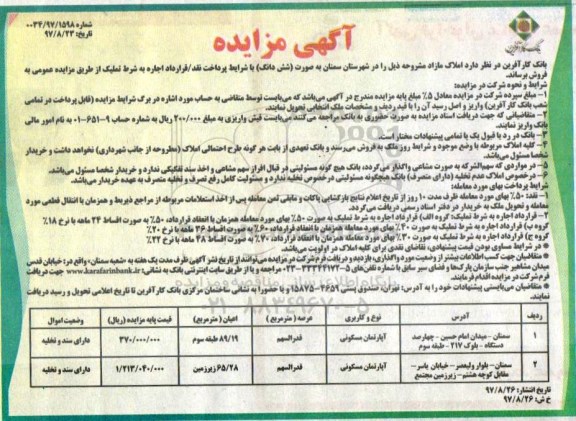 شماره ۰۰۳۴/۹۷/۱۵۹۸
تاریخ: ۹۷/۸/۲۳
بانک کارآفرین
آگهی مزایده
بانک کارآفرین در نظر دارد املاک مازاد مشروحه ذیل را در شهرستان سمنان به صورت (شش دانگ) با شرایط پرداخت نقد/قرارداد اجاره به شرط تملیک از طریق مزایده عمومی به
فروش برساند.
شرایط و نحوه شرکت در مزایده:
۱- مبلغ سپرده شرکت در مزایده معادل ۵٪ مبلغ پایه مزایده مندرج در آگهی می‌باشد که می‌بایست توسط متقاضی به حساب مورد اشاره در برگ شرایط مزایده (قابل پرداخت در تمامی
شعب بانک کارآفرین) واریز و اصل رسید آن را با قید ردیف و مشخصات ملک انتخابی تحویل نمایند.
۲- متقاضیانی که جهت دریافت اسناد مزایده به صورت حضوری به بانک مراجعه می‌کنند می‌بایست فیش واریزی به مبلغ ۲۰۰/۰۰۰ ریال به شماره حساب ۹-۶۵۱-۰۰۱ به نام امور مالی
بانک واریز نمایند.
۳- بانک در رد یا قبول یک یا تمامی پیشنهادات مختار است.
۴- کلیه املاک مربوطه با وضع موجود و شرایط روز ملک به فروش می‌رسند و بانک تعهدی از بابت هر گونه طرح احتمالی املاک (مطروحه از جانب شهرداری) نخواهد داشت و خریدار
شخصا مسئول می‌باشد.
۵- در مواردی که سهم‌الشرکه به صورت مشاعی واگذار می‌گردد، بانک هیچ گونه مسئولیتی در قبال افراز سهم مشاعی و اخذ سند تفکیکی ندارد و خریدار شخصا مسئول می‌باشد.
۶- در خصوص املاک عدم تخلیه (دارای متصرف) بانک هیچگونه مسئولیتی درخصوص تخلیه ندارد و مسئولیت کامل رفع تصرف و تخلیه متصرف به عهده خریدار می‌باشد.
شرایط پرداخت بهای مورد معامله:
۱- نقد: ۵۰٪ بهای مورد معامله ظرف مدت ۱۰ روز از تاریخ اعلام نتایج بازگشایی پاکات و مابقی ثمن معامله پس از اخذ استعلامات مربوطه از مراجع ذیربط و همزمان با انتقال قطعی مورد
معامله و تحویل ملک به خریدار در دفتر اسناد رسمی دریافت می‌گردد.
۲- قرارداد اجاره به شرط تملیک: گروه الف) قرارداد اجاره به شرط تملیک به صورت ۵۰٪ بهای مورد معامله همزمان با انعقاد قرارداد، ۵۰٪ به صورت اقساط ۲۴ ماهه با نرخ ۱۸٪
گروه ب) قرارداد اجاره به شرط تملیک به صورت ۴۰٪ بهای مورد معامله همزمان با انعقاد قرارداد و ۶۰٪ به صورت اقساط ۳۶ ماهه با نرخ ۲۰٪
گروه ج) قرارداد اجاره به شرط تملیک به صورت ۳۰٪ بهای مورد معامله همزمان با انعقاد قرارداد، ۷۰٪ به صورت اقساط ۴۸ ماهه با نرخ ۲۲٪
* در شرایط مساوی بودن قیمت پیشنهادی، تقاضای نقدی برای کلیه املاک در اولویت می‌باشد.
* متقاضیان جهت کسب اطلاعات بیشتر از وضعیت مورد واگذاری، بازدید و دریافت فرم شرکت در مزایده می‌توانند از تاریخ نشر آگهی ظرف مدت یک هفته به «شعبه سمنان» واقع در: خیابان قدس
میدان مشاهیر جنب سازمان پارک‌ها و فضای سبز سابق با شماره تلفن‌های ۵-۳۳۳۴۴۱۷۲-۰۲۳ مراجعه و یا از طریق سایت اینترنتی بانک به نشانی: www.karafarinbank.ir جهت دریافت
فرم شرکت در مزایده اقدام فرمایند.
* متقاضیان می‌بایستی پیشنهادات خود را به آدرس تهران، صندوق پستی ۴۶۵۹-۱۵۸۷۵ و یا حضورا به نشانی ساختمان مرکزی بانک کارآفرین تا تاریخ اعلامی تحویل و رسید دریافت
نمایند.
ردیف آدرس نوع و کاربری عرصه (مترمربع) اعیان (مترمربع) قیمت پایه مزایده (ریال) وضعیت اموال
۱ سمنان - میدان امام حسین - چهارصد دستگاه - بلوک ۲۱۷ - طبقه سوم آپارتمان مسکونی قدرالسهم ۸۹/۱۹ طبقه سوم ۳۷۰/۰۰۰/۰۰۰ دارای سند و تخلیه
۲ سمنان - بلوار ولیعصر - خیابان یاسر - مقابل کوچه هشتم - زیرزمین مجتمع آپارتمان مسکونی قدرالسهم ۶۵/۲۸ زیرزمین ۱/۲۱۳/۰۴۰/۰۰۰ دارای سند و تخلیه
تاریخ انتشار: ۹۷/۸/۲۶
خ ش: ۹۷/۸/۲۶